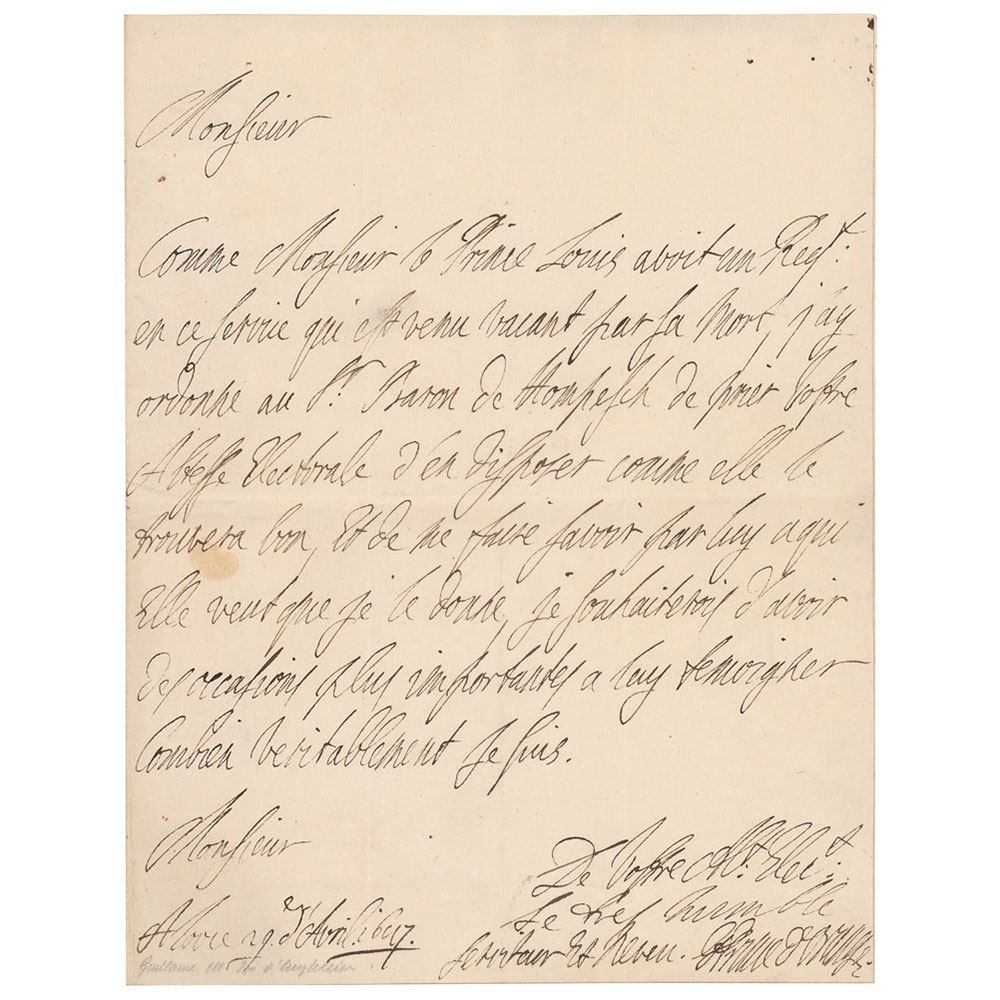 Monsieur
Comme Monsieur le Prince Louis avoit un Regt.
en ce service qui est venu vacant par sa Mort, j'ay
ordonne au Sr. Baron de Hompesch de prier Vostre
Altesse Electorale d'en disposer comme elle le
trouvera bon, Et de me faire savoir par luy a qui
Elle veut que je le donne, je souhaiterois d'avoir
des occasions plus importantes a luy temoigner
Combien veritablement je suis.
Monsieur
De Vostre Alt. Elect.
le tres humble
serviteur Et Neveu. G Prince d'Orange.
29. d'Avril 1687.
Guillaume III